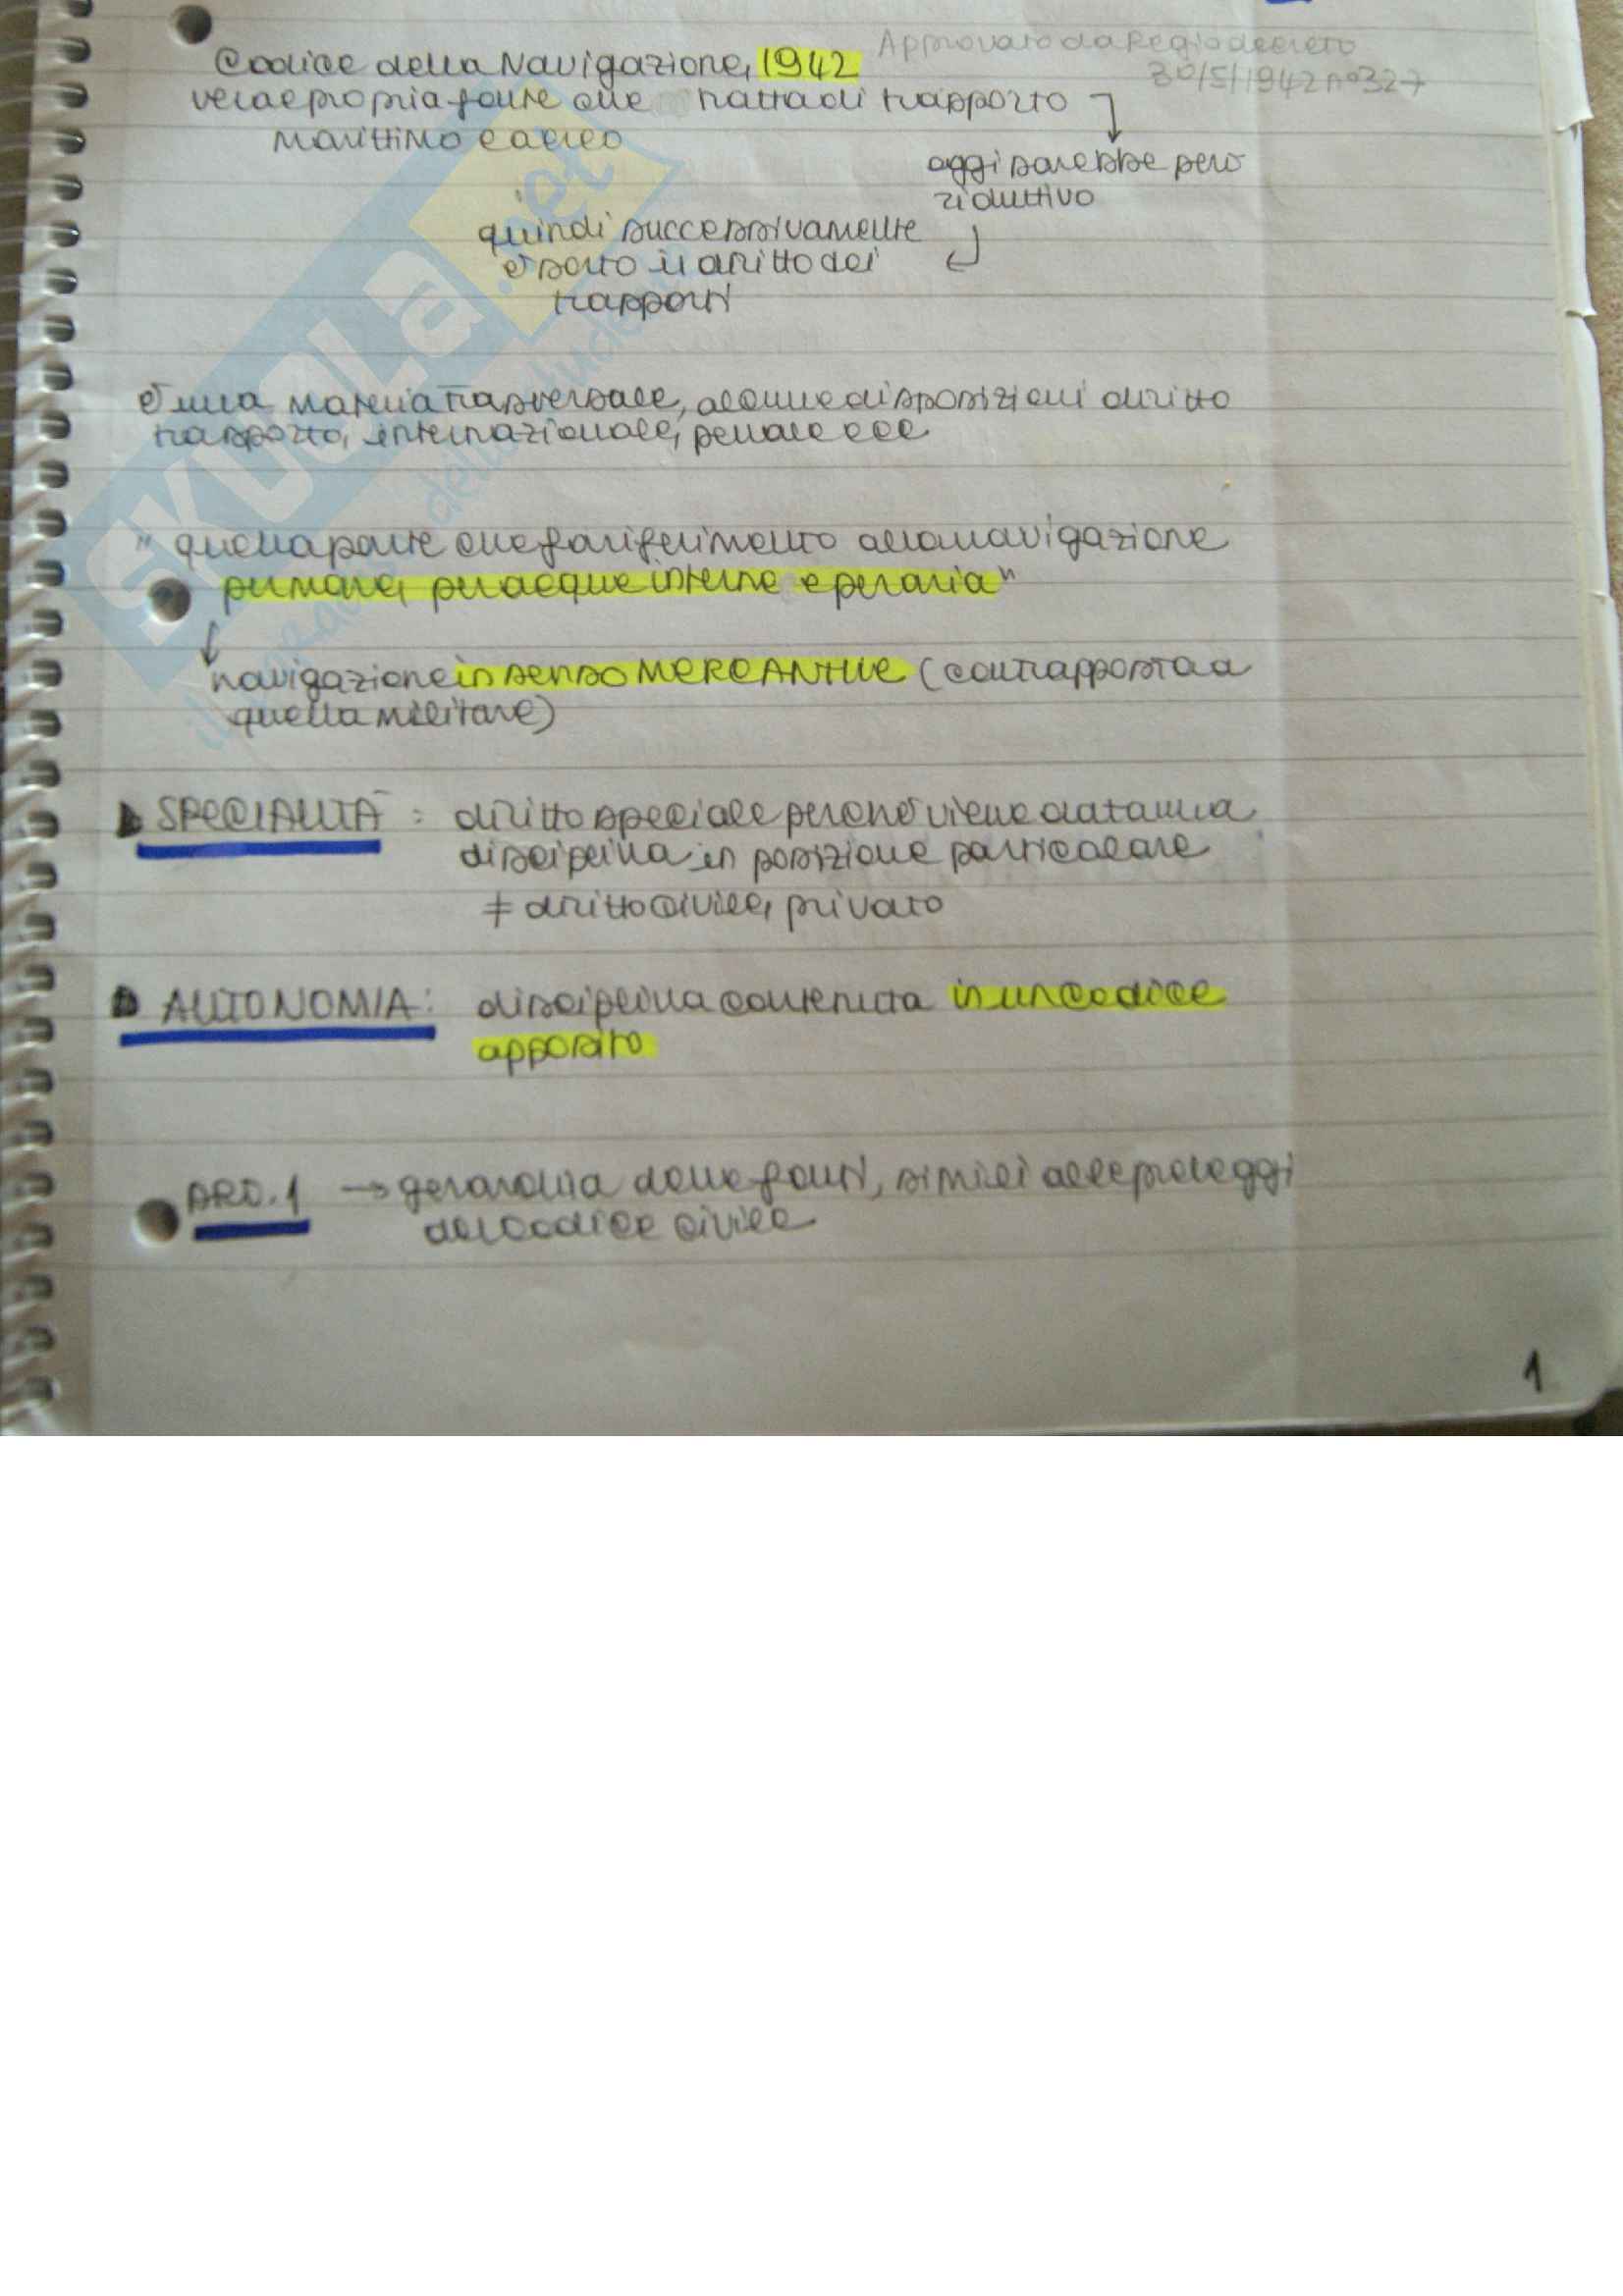 Codice della Navigazione, 1942
Approvato da Regio decreto
30/5/1942 n°327
vera e propria fonte che tratta di trasporto
marittimo e aereo
oggi sarebbe però
riduttivo
quindi successivamente
è sorto il diritto dei
trasporti
è una materia trasversale, alcune disposizioni diritto
trasporto, internazionale, penale ecc
"quella parte che fa riferimento alla navigazione
per mare, per acque interne e per aria"
navigazione in senso MERCANTILE (contrapposta a
quella militare)
SPECIALITÀ: diritto speciale perché viene data una
disciplina in posizione particolare
≠ diritto civile, privato
AUTONOMIA: disciplina contenuta in un codice
apposito
ART. 1 → gerarchia delle fonti, simili alle preleggi
del codice civile
1
SKUOLA.net